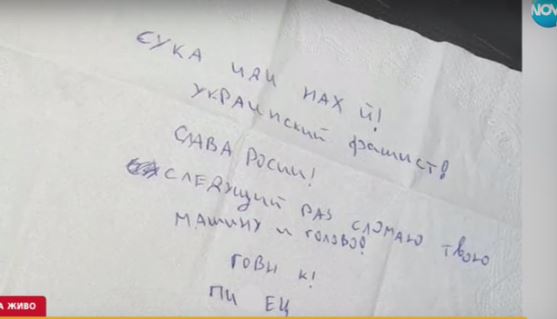 NOV
СУКА ИДИ НАХ Й!
УКРАИНСКИЙ ФАШИСТ!
СЛАВА РОСИИ!
СЛЕДУЩИЙ РАЗ СЛОМАЮ ТВОЮ
МАШИНУ И ГОЛОВО!
ГОВН К!
ПИ ЕЦ
НА ЖИВО